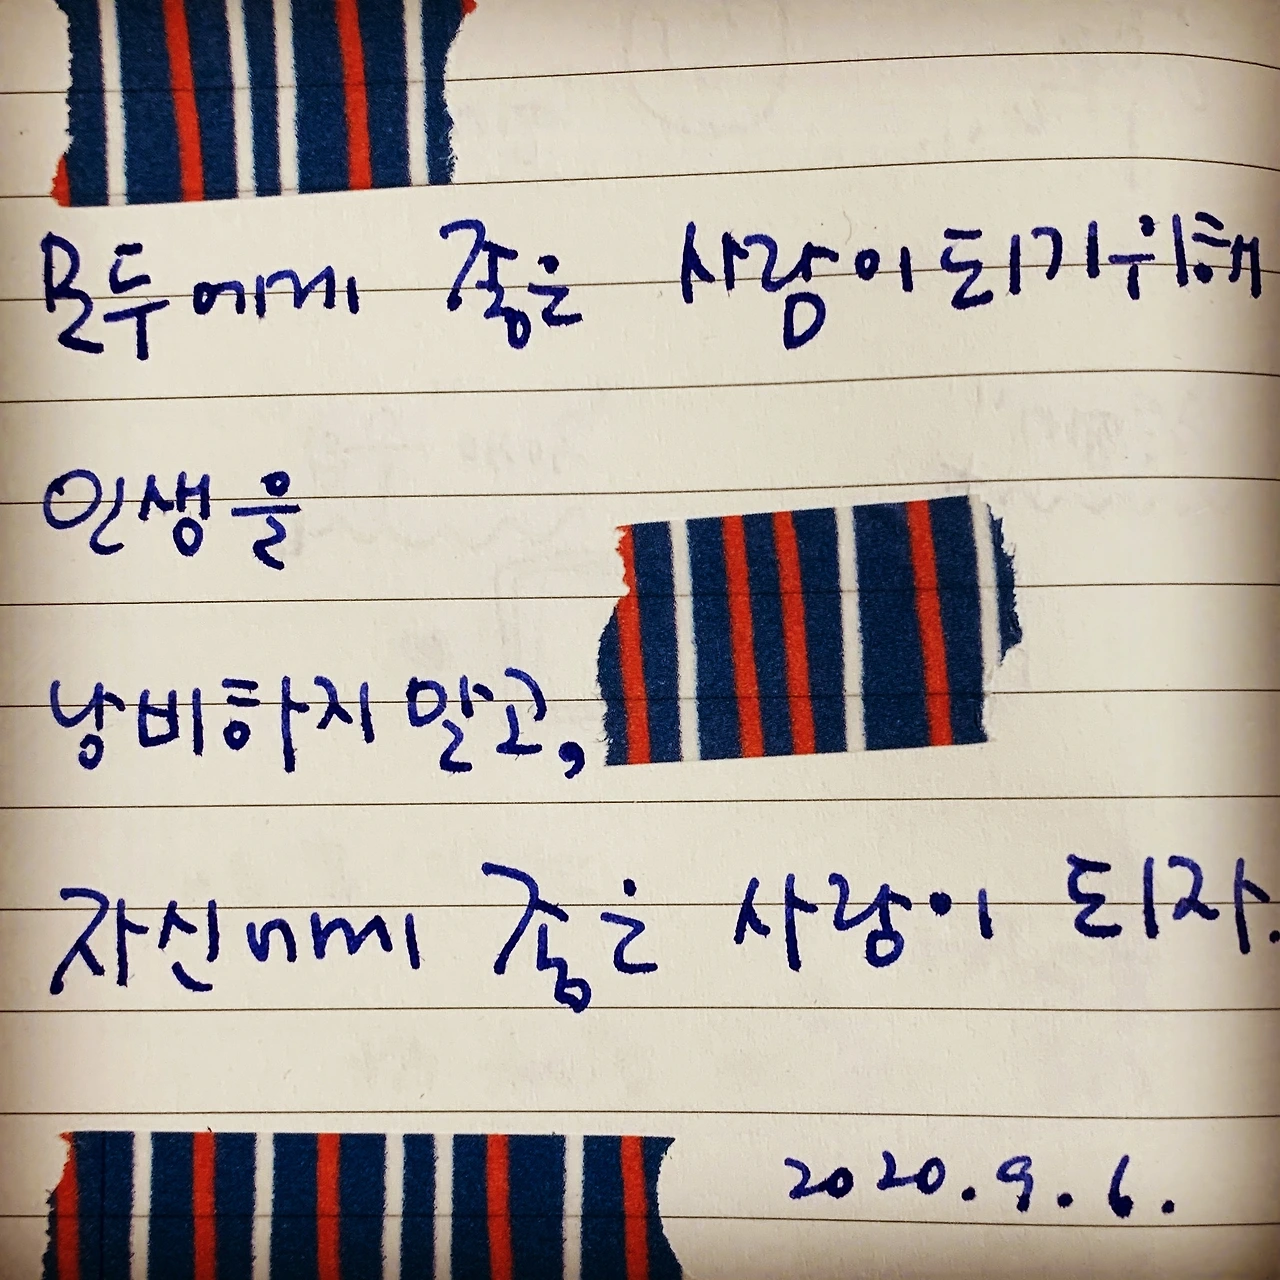 모두에게 좋은 사람이 되기 위해
인생을
낭비하지 말고,
자신에게 좋은 사람이 되자.
2020. 9. 6.